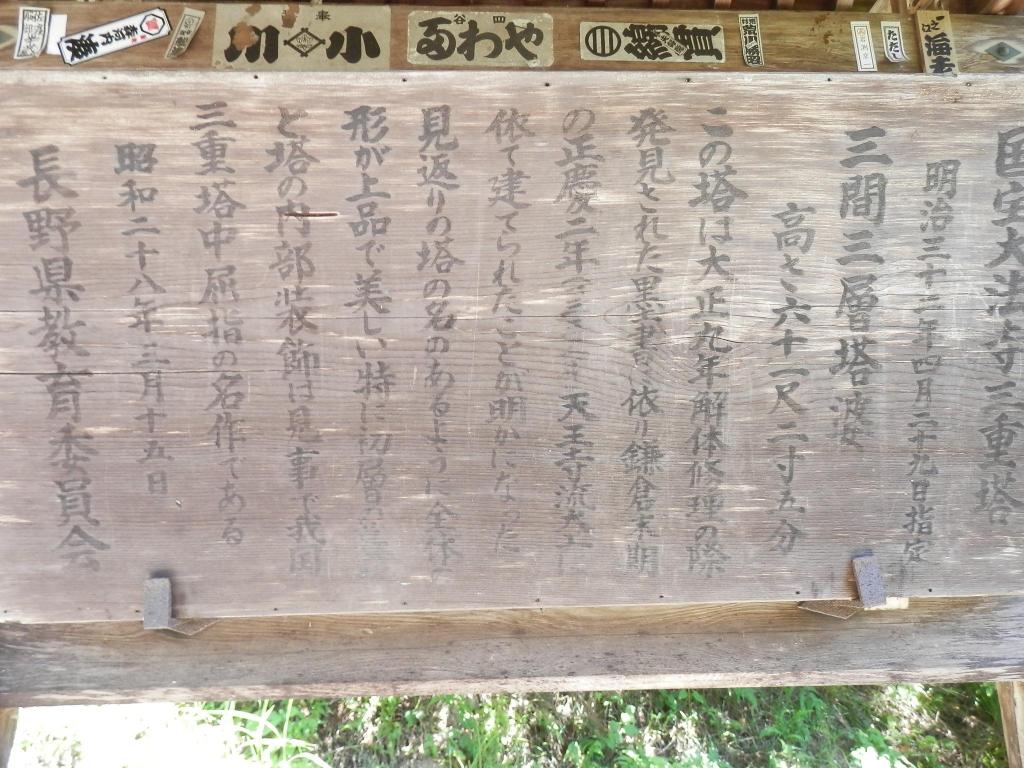 国宝大法寺三重塔
明治三十二年四月二十九日指定
三間三層塔婆
高さ六十一尺二寸五分
この塔は大正九年解体修理の際
発見された墨書に依り鎌倉末期
の正慶二年 天王寺流大工に
依て建てられたことが明かになった
見返りの塔の名のあるように全体の
形が上品で美しい特に初層の
と塔の内部装飾は見事で我国
三重塔中屈指の名作である
昭和二十八年三月十五日
長野県教育委員会
小川
四谷
やわる